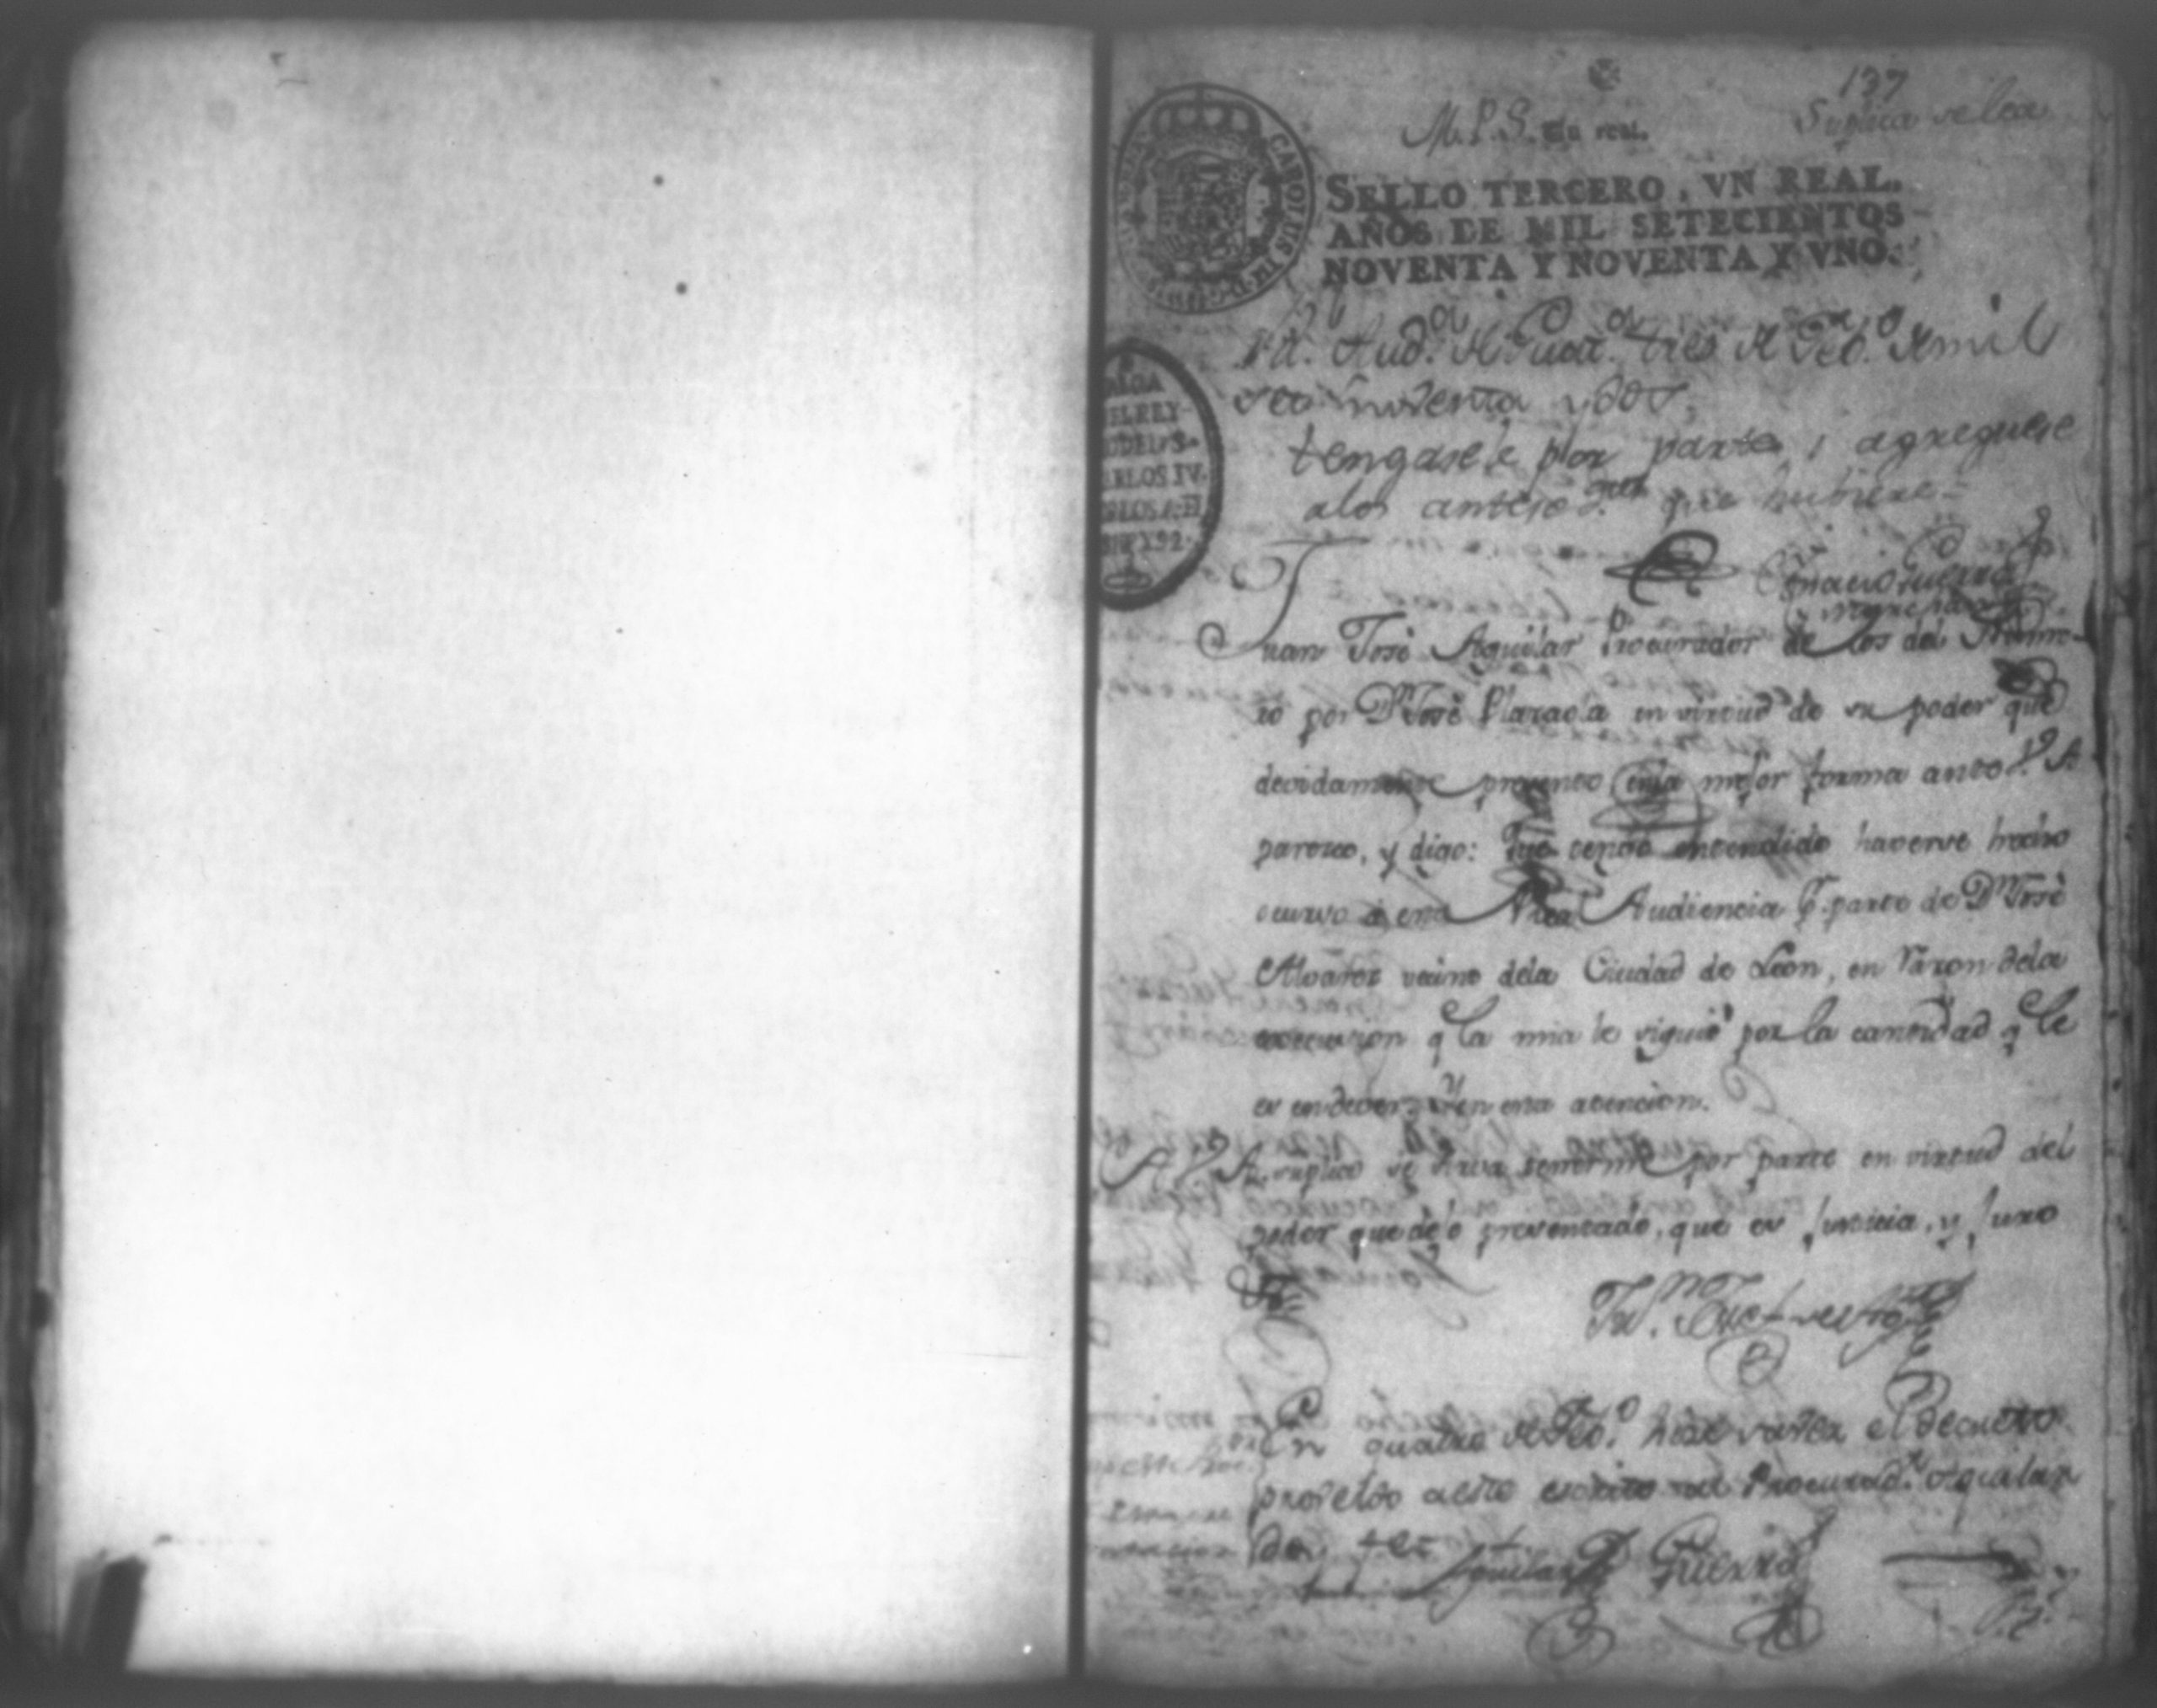 137
M. P. S. Un real.
SELLO TERCERO, VN REAL.
AÑOS DE MIL SETECIENTOS
NOVENTA Y NOVENTA Y VNO.
CAROLUS IV D.G.
VALGA
EL REY
CARLOS IV.
Rl. Audª. de Guatª. tres de Febº. de mil
setos. noventa y dos
tengasele por parte, i agreguese
a los anteced.tes que hubiere=
Ignacio Guerra
Juan José Aguilar Procurador de los del Nume-
ro por Dn. José Plazaola en virtud de su poder que
devidamente presento en la mejor forma ante V. A.
paresco, y digo: Que tengo entendido haverse hecho
ocurso á esta Real Audiencia p. parte de Dn. José
Alvarez vecino dela Ciudad de Leon, en razon dela
execusion q la mia le siguió por la cantidad q le
es en dever. Y en esta atencion.
A. V. A. suplico se sirva tenerme por parte en virtud del
poder que dejo presentado, que es Justicia, y Juro
En quatro de Febº. hise saver el decreto
proveido a este escrito al Procurad.r Aguilar
doy fee
Aguilar Guerra